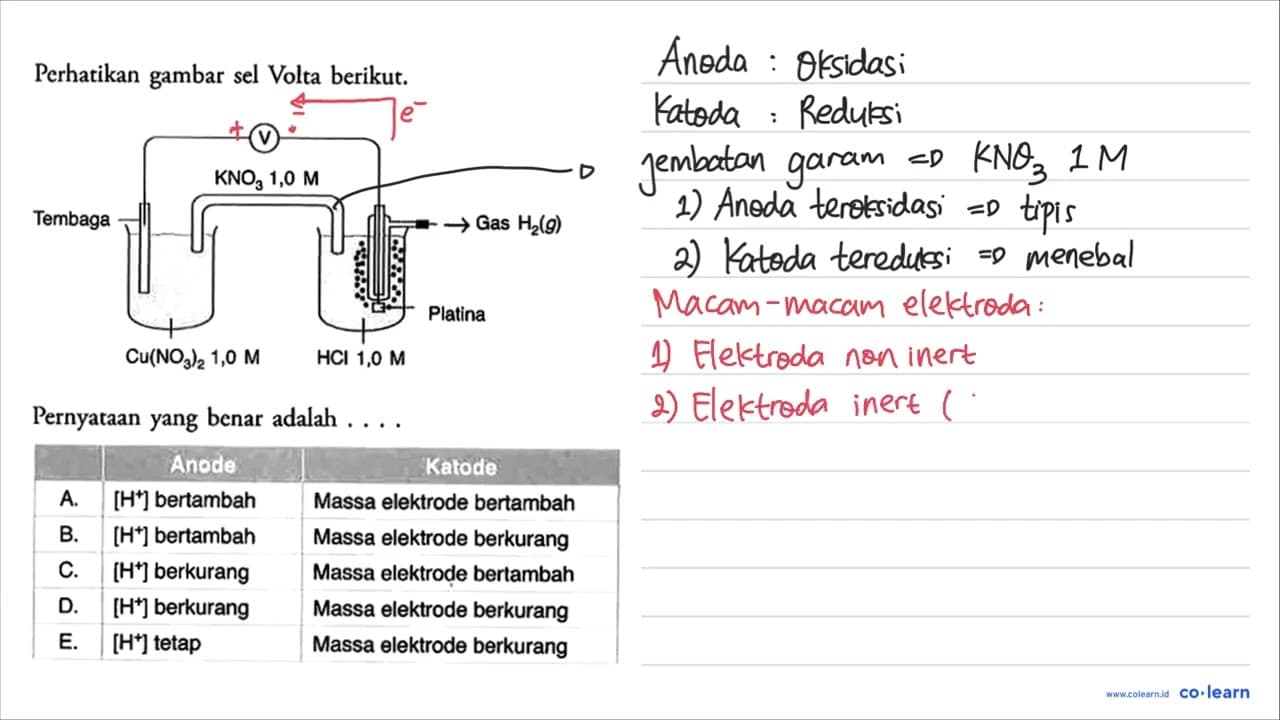 Perhatikan gambar sel Volta berikut.
e⁻
+ V -
KNO₃ 1,0 M
Tembaga
→ Gas H₂(g)
Platina
Cu(NO₃)₂ 1,0 M
HCl 1,0 M
Pernyataan yang benar adalah . . . .
Anode Katode
A. [H⁺] bertambah Massa elektrode bertambah
B. [H⁺] bertambah Massa elektrode berkurang
C. [H⁺] berkurang Massa elektrode bertambah
D. [H⁺] berkurang Massa elektrode berkurang
E. [H⁺] tetap Massa elektrode berkurang
Anoda : Oksidasi
Katoda : Reduksi
jembatan garam => KNO₃ 1 M
1) Anoda teroksidasi => tipis
2) Katoda tereduksi => menebal
Macam-macam elektroda :
1) Elektroda non inert
2) Elektroda inert (
www.colearn.id co·learn